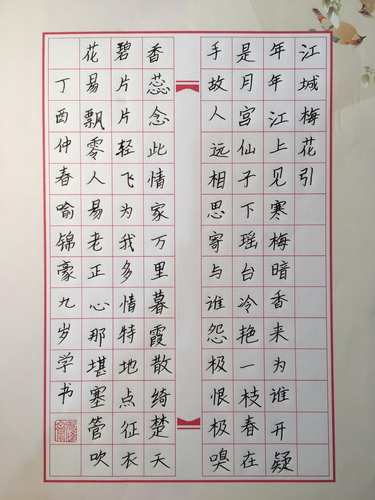 江城梅花引
年年江上见寒梅暗香来为谁开疑
是月宫仙子下瑶台冷艳一枝春在
手故人远相思寄与谁怨极恨极嗅
香蕊念此情家万里暮霞散绮楚天
碧片片轻飞为我多情特地点征衣
花易飘零人易老正心那堪塞管吹
丁酉仲春喻锦豪九岁学书